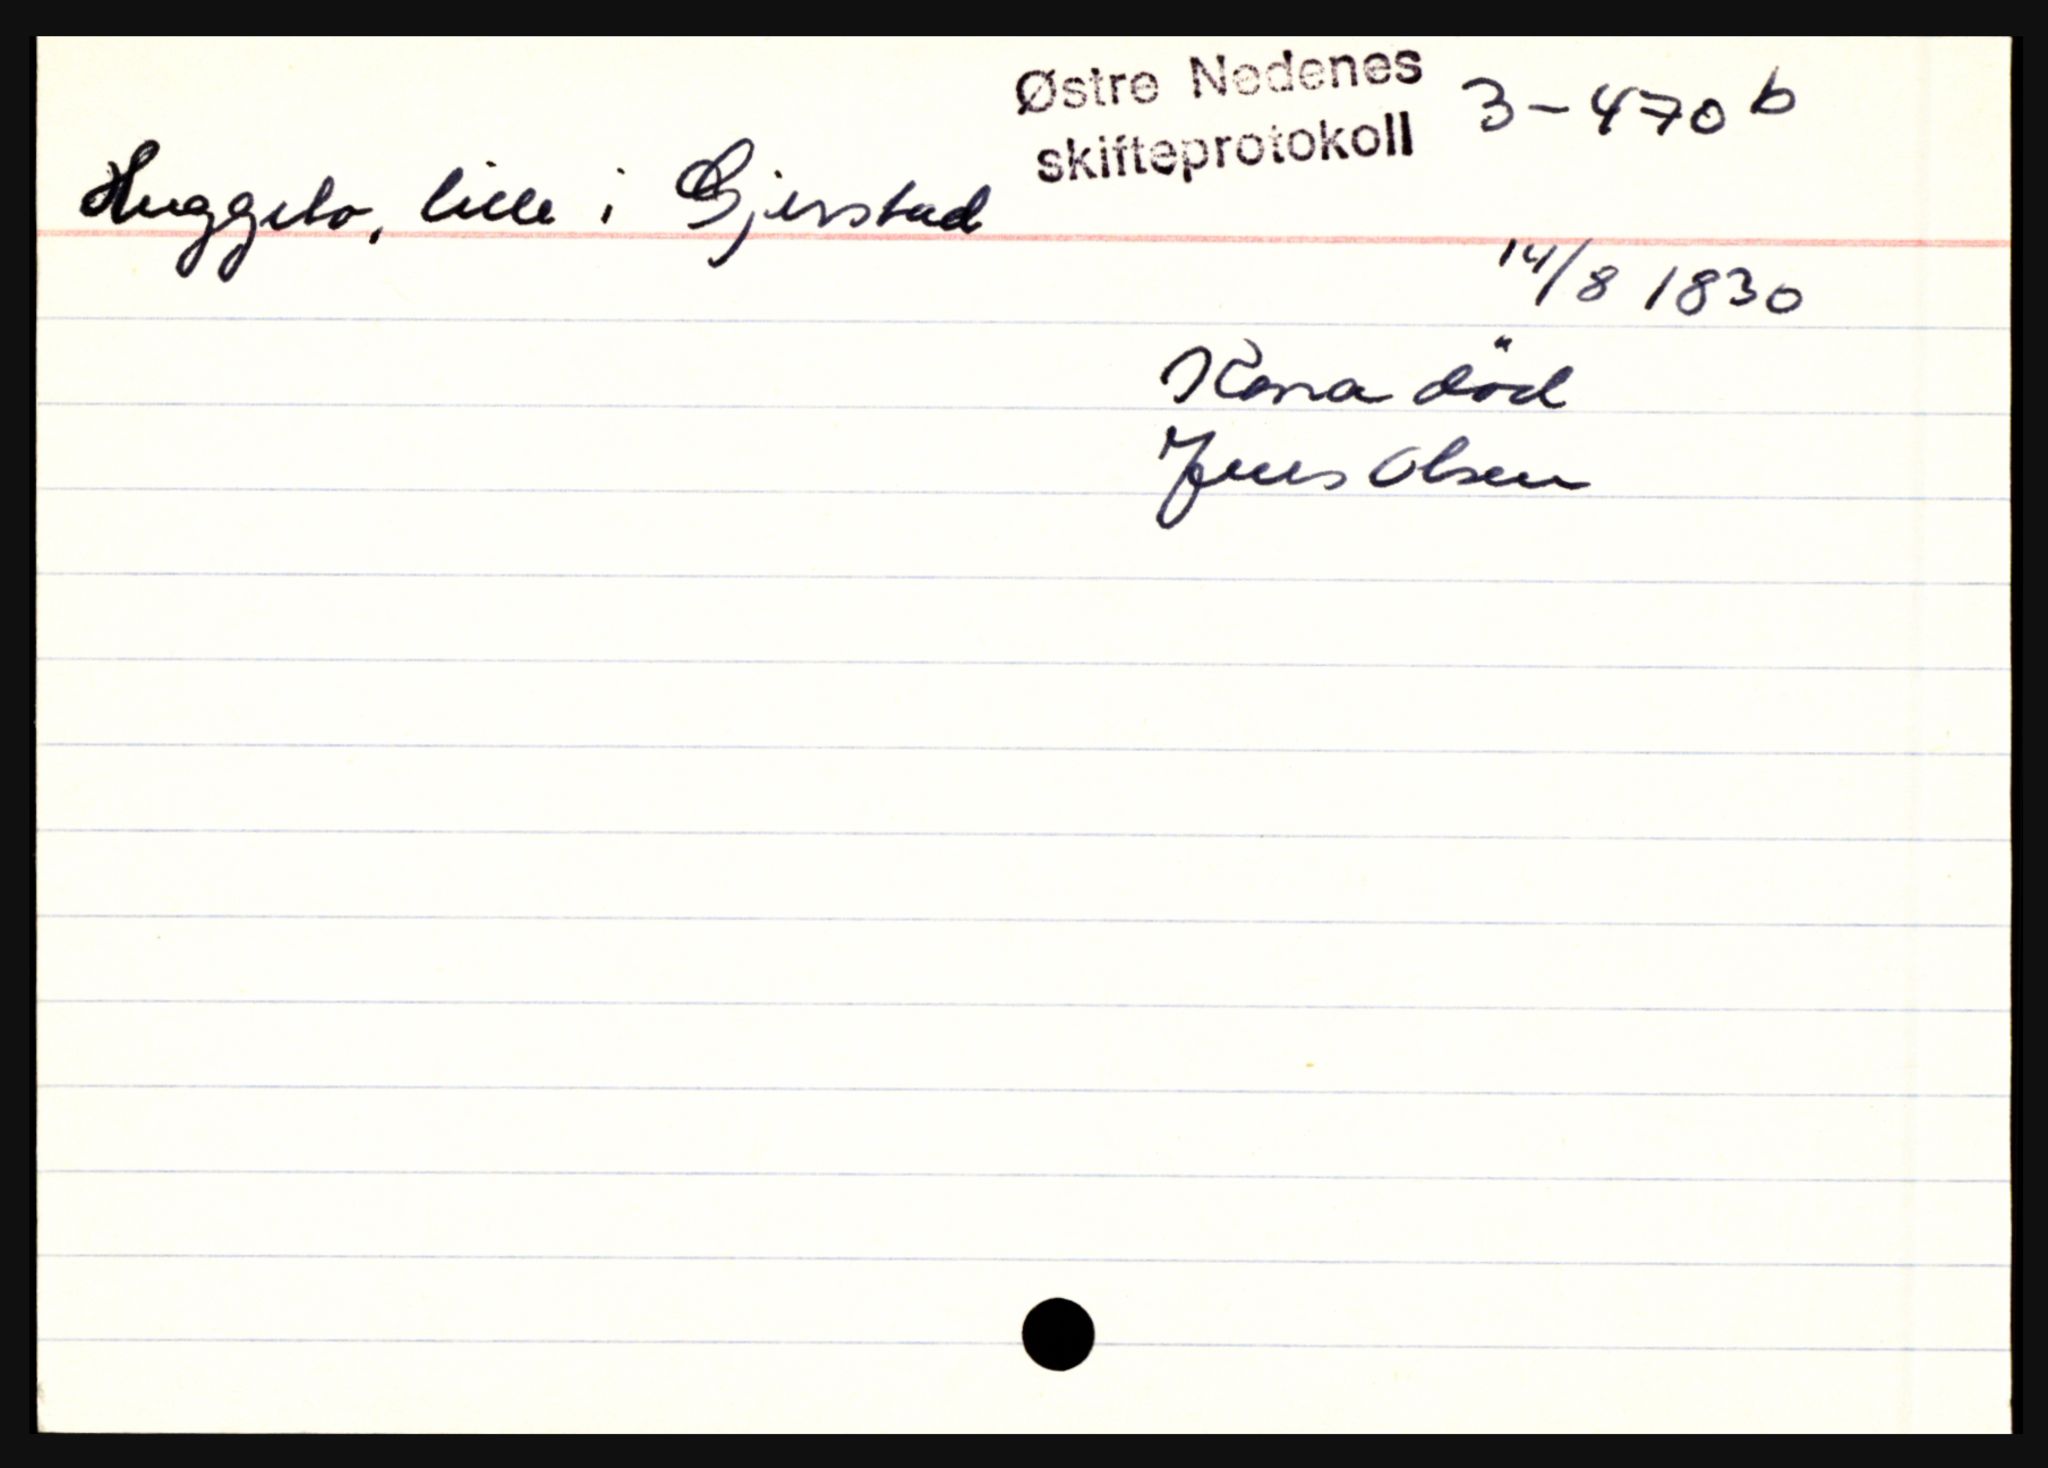 Østre Nedenes
skifteprotokoll 3-470 b
Huggeto, lille i Gjerstad
14/8 1830
Kona död
Jens Olsen